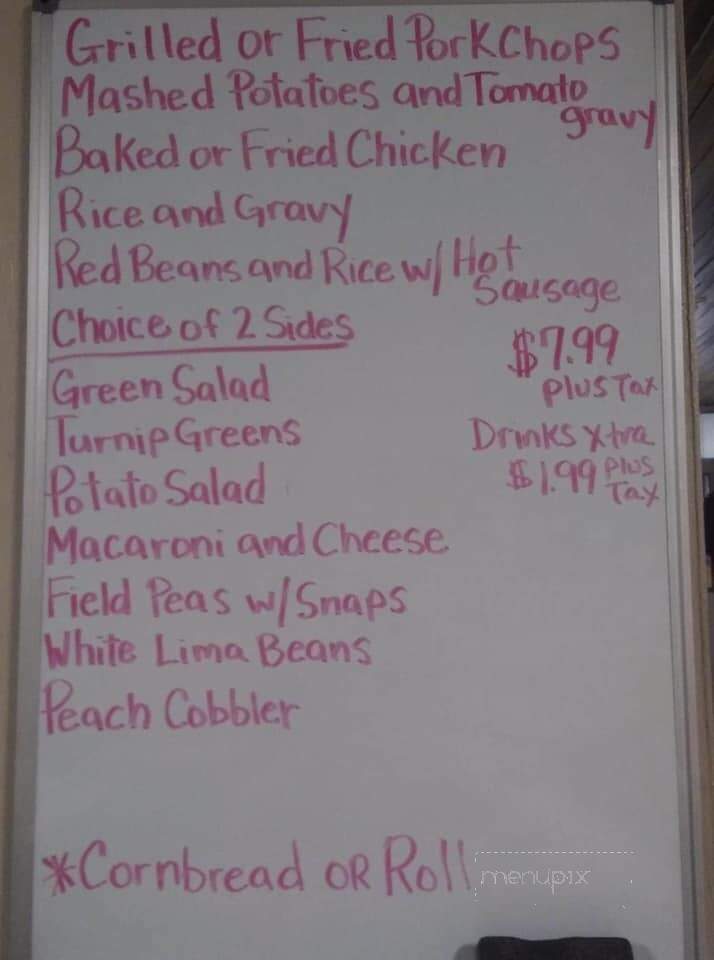 Grilled or Fried Pork Chops
Mashed Potatoes and Tomato
gravy
Baked or Fried Chicken
Rice and Gravy
Red Beans and Rice w/ Hot
Sausage
Choice of 2 Sides
$7.99
plus Tax
Green Salad
Turnip Greens
Drinks Xtra
$1.99 plus
Tax
Potato Salad
Macaroni and Cheese
Field Peas w/ Snaps
White Lima Beans
Peach Cobbler
*Cornbread OR Roll
menupix